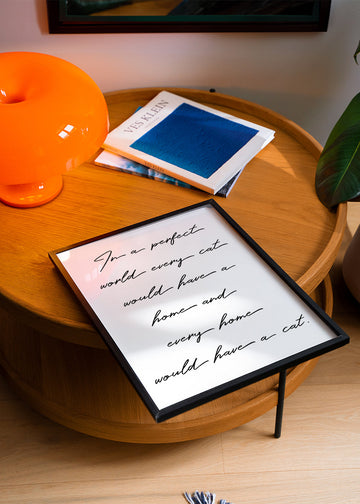 YVES KLEIN
In a perfect
world every cat
would have a
home and
every home
would have a cat.